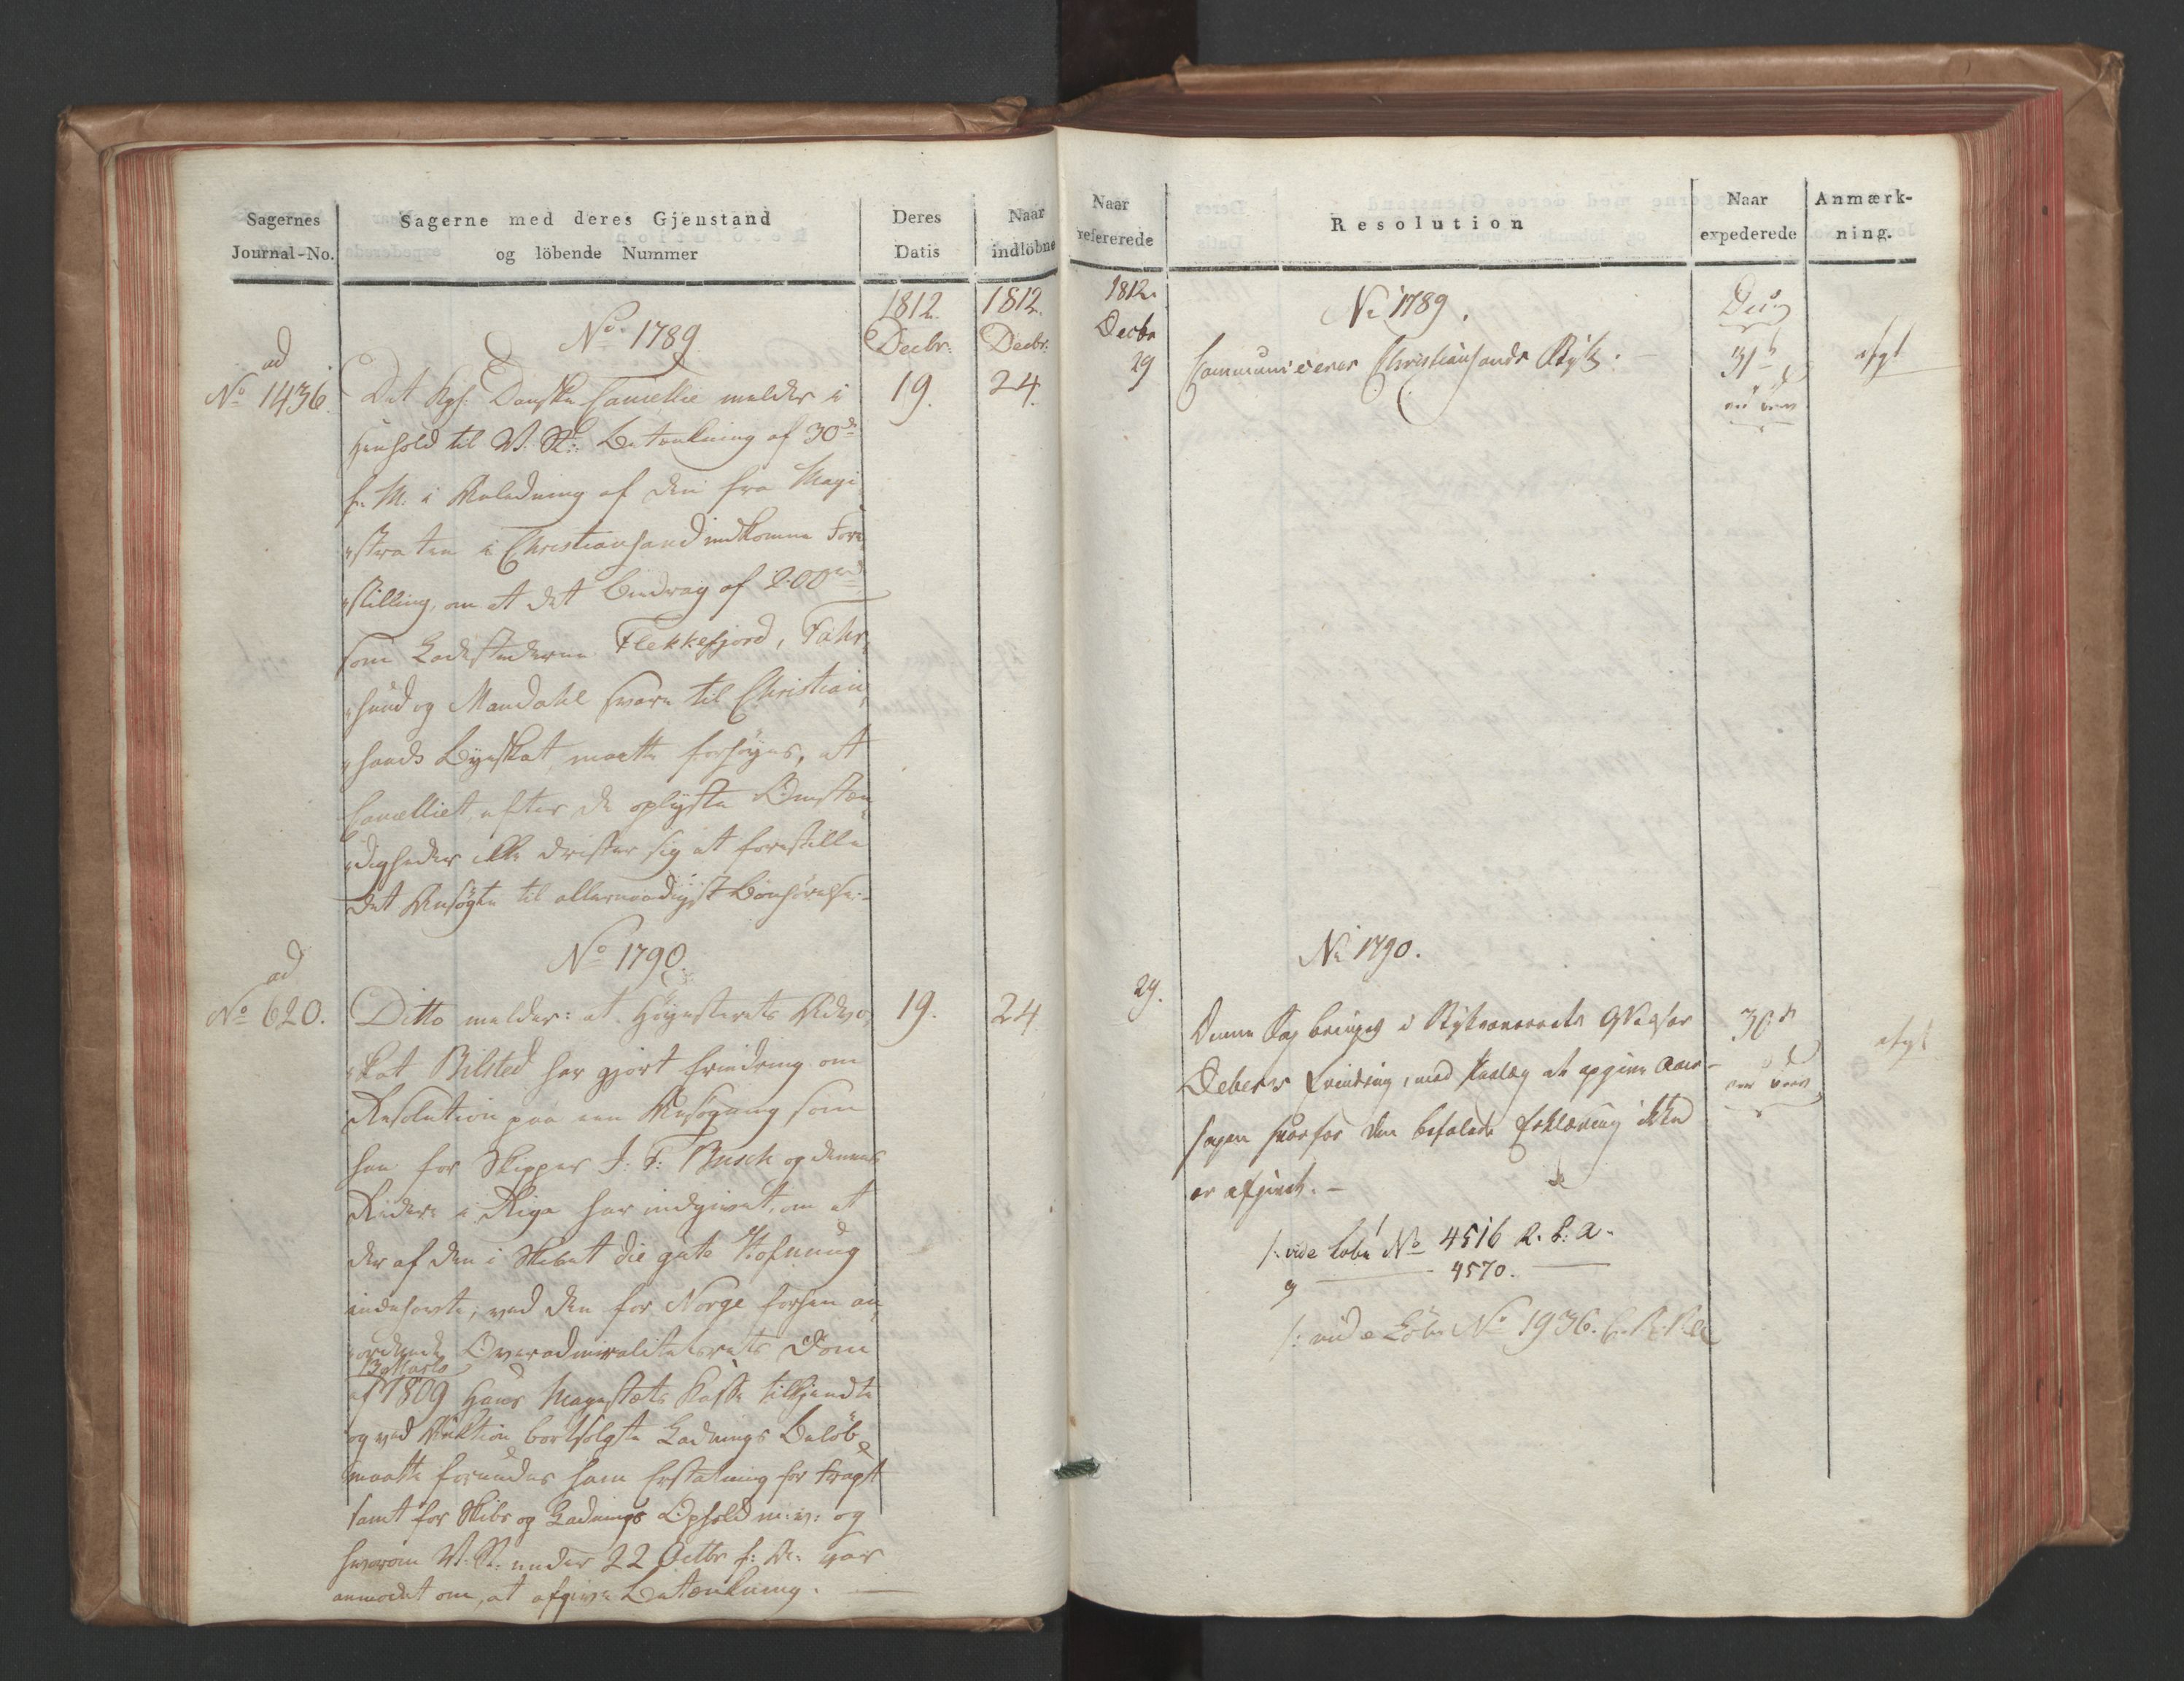 Sagernes
Journal-No.
Sagerne med deres Gjenstand
og löbende Nummer
Deres
Datis
Naar
indlöbne
1812.
Decbr:
1812.
Decbr:
No 1789
ad
No 1436.
Det Kgl: Danske Cancellie melder i
19.
24.
Henhold til V. St: Betænkning af 30de
f. M. i Anledning af den fra Magi
„straten i Christiansand indkomne Fore
„stilling, om at det Bidrag af 200rd
som Ladestederne Flekkefjord, Fahr„
„sund og Mandahl svare til Christian„
„sands Byeskat, maatte forhøyes, at
Cancelliet efter de oplyste Omstæn„
„digheder ikke drister sig at forestille
det Ansøgte til allernaadigst Bønhørelse.
No 1790.
ad
No 620.
Ditto melder: at Höyesterets Advo„
19.
24
„kat Bilsted har gjort Erindring om
Resolution paa een Ansøgning som
han for Skipper J: F: Busch og dennes
Redere i Riga har indgivet, om at
der af den i Skibet die gute Hofnung
indehavte, ved den for Norge forhen an„
„ordnede Overadmiralitetsrets Dom
13 Marts
af 1809 Hans Majestæts Kasse tilkjendte
og ved Auktion bortsolgte Ladnings Beløb
maatte forundes ham Erstatning for Fragt
samt for Skibs og Ladnings Ophold m: v: og
hvorom V. St. under 22 Octbr f: A: var
anmodet om, at afgive Betænkning.
Naar
refererede
Resolution
Naar
expederede
Anmærk-
ning.
1812.
Decbr
29
No 1789.
Communiceres Christiansands Stift.
31
afgl
29.
No 1790.
Denne Sag bringes i Stiftsoverrets Assessor
30
afgl
Debes's Erindring, med Paalæg at opgive Aar-
sagen hvorfor den befalede Erklæring ikke
er afgivet. –
/: vide Lobe No 4516 R. S. A.
og — 4570. —
/: vide Löbe No 1936.